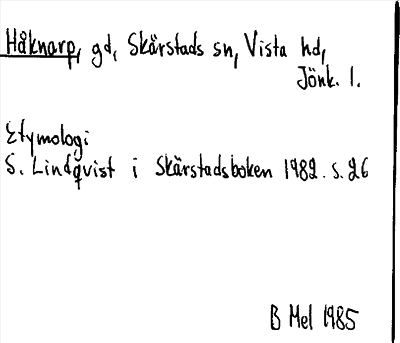 Håknarp, gd, Skärstads sn, Vista hd,
Jönk. l.
Etymologi
S. Lindqvist i Skärstadsboken 1982. s. 26
B Mel 1985